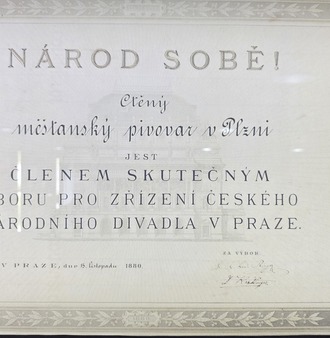 NÁROD SOBĚ!
Ctěný
měšťanský pivovar v Plzni
JEST
ČLENEM SKUTEČNÝM
BORU PRO ZŘÍZENÍ ČESKÉHO
ÁRODNÍHO DIVADLA V PRAZE.
ZA SBOR
V PRAZE, dne listopadu 1880.